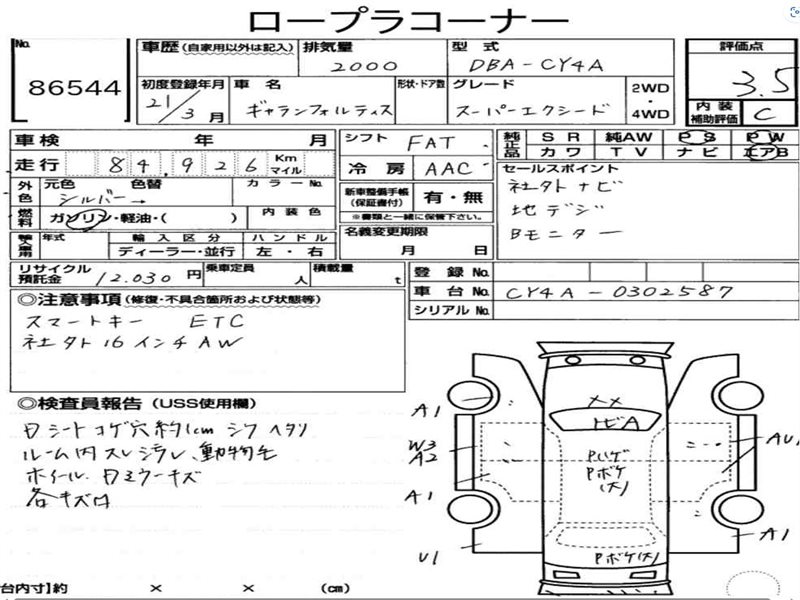 ロープラコーナー
No.
86544
車歴 (自家用以外は記入) 排気量 2000 型式 DBA-CY4A
初度登録年月 21/3月 車名 ギャランフォルティス 形状・ドア数 グレード スーパーエクシード 2WD・4WD
評価点 3.5
内装補助評価 C
車検 年 月
シフト FAT
純正品 SR 純AW PS PW
カワ TV ナビ エアB
走行 84,926 Km マイル
冷房 AAC
セールスポイント
社外ナビ
地デジ
Bモニター
外色 元色 シルバー→ 色替 カラーNo.
新車整備手帳 (保証書付) 有・無
※書類と一緒に保管下さい。
燃料 ガソリン・軽油・( ) 内装色
名義変更期限 月 日
輸入車用 年式 輸入区分 ハンドル
ディーラー・並行 左・右
リサイクル預託金 12.030円 乗車定員 人 積載量 t
登録No.
車台No. CY4A-0302587
シリアルNo.
◎注意事項 (修復・不具合箇所および状態等)
スマートキー ETC
社外16インチAW
◎検査員報告 (USS使用欄)
日シートコゲ穴約1cm シワ ヘタリ
ルーム内スレ汚レ、動物毛
ホイール、日ミラーキズ
各キズ凹
A1
××
トビA
W3
A2
AU1
Pハゲ
Pボケ
(大)
A1
U1
Pボケ(大)
A1
台内寸】約 × × (cm)